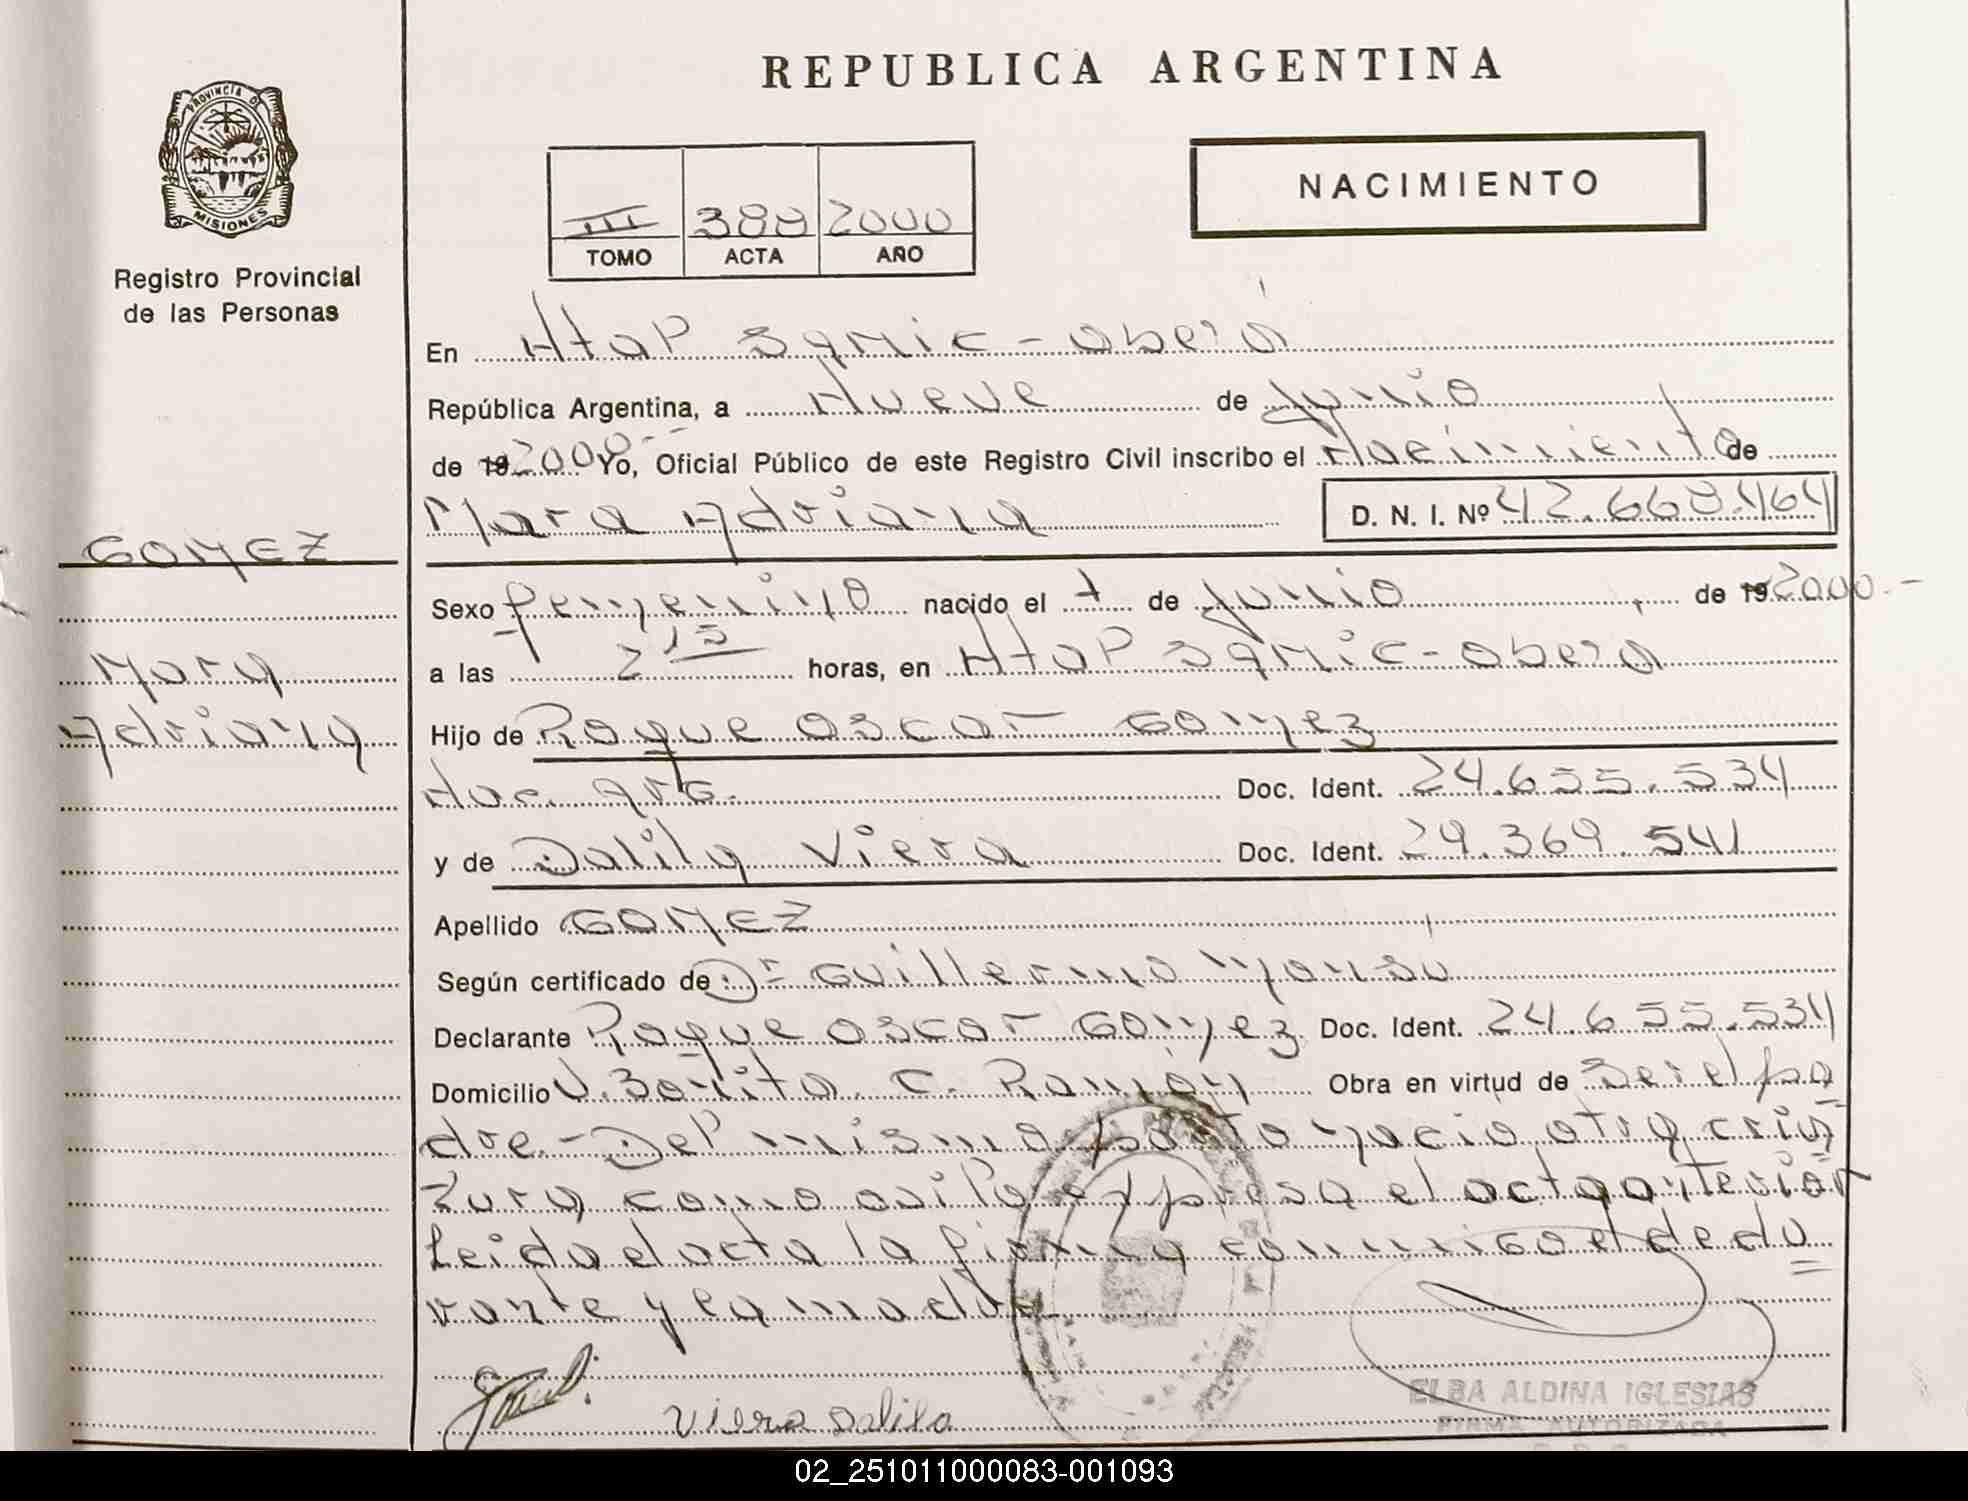 REPUBLICA ARGENTINA
PROVINCIA DE
MISIONES
Registro Provincial
de las Personas
NACIMIENTO
III 388 2000
TOMO ACTA AÑO
En Htal Samic - Oberá
República Argentina, a Nueve de Junio
de 19 2000 -- Yo, Oficial Público de este Registro Civil inscribo el Nacimiento de
Mara Adriana D. N. I. Nº 42.668.464
GOMEZ
Mara
Adriana
Sexo femenino nacido el 7 de Junio de 19 2000.-
a las 2 15 horas, en Htal Samic - Oberá
Hijo de Roque Oscar Gomez
Nac. arg. Doc. Ident. 24.655.534
y de Dalila Viera Doc. Ident. 29.369.541
Apellido GOMEZ
Según certificado de Dr Guillermo
Declarante Roque Oscar Gomez Doc. Ident. 24.655.534
Domicilio V. Bonita. C. Ramón Obra en virtud de Ser el pa
dre.- Del mismo parto nacio otra cria=
tura como asi lo expresa el acta anterior
Leida el acta la firma conmigo el decla
rante y la madre
Viera Dalila
ELBA ALDINA IGLESIAS
FIRMA AUTORIZADA
02_251011000083-001093